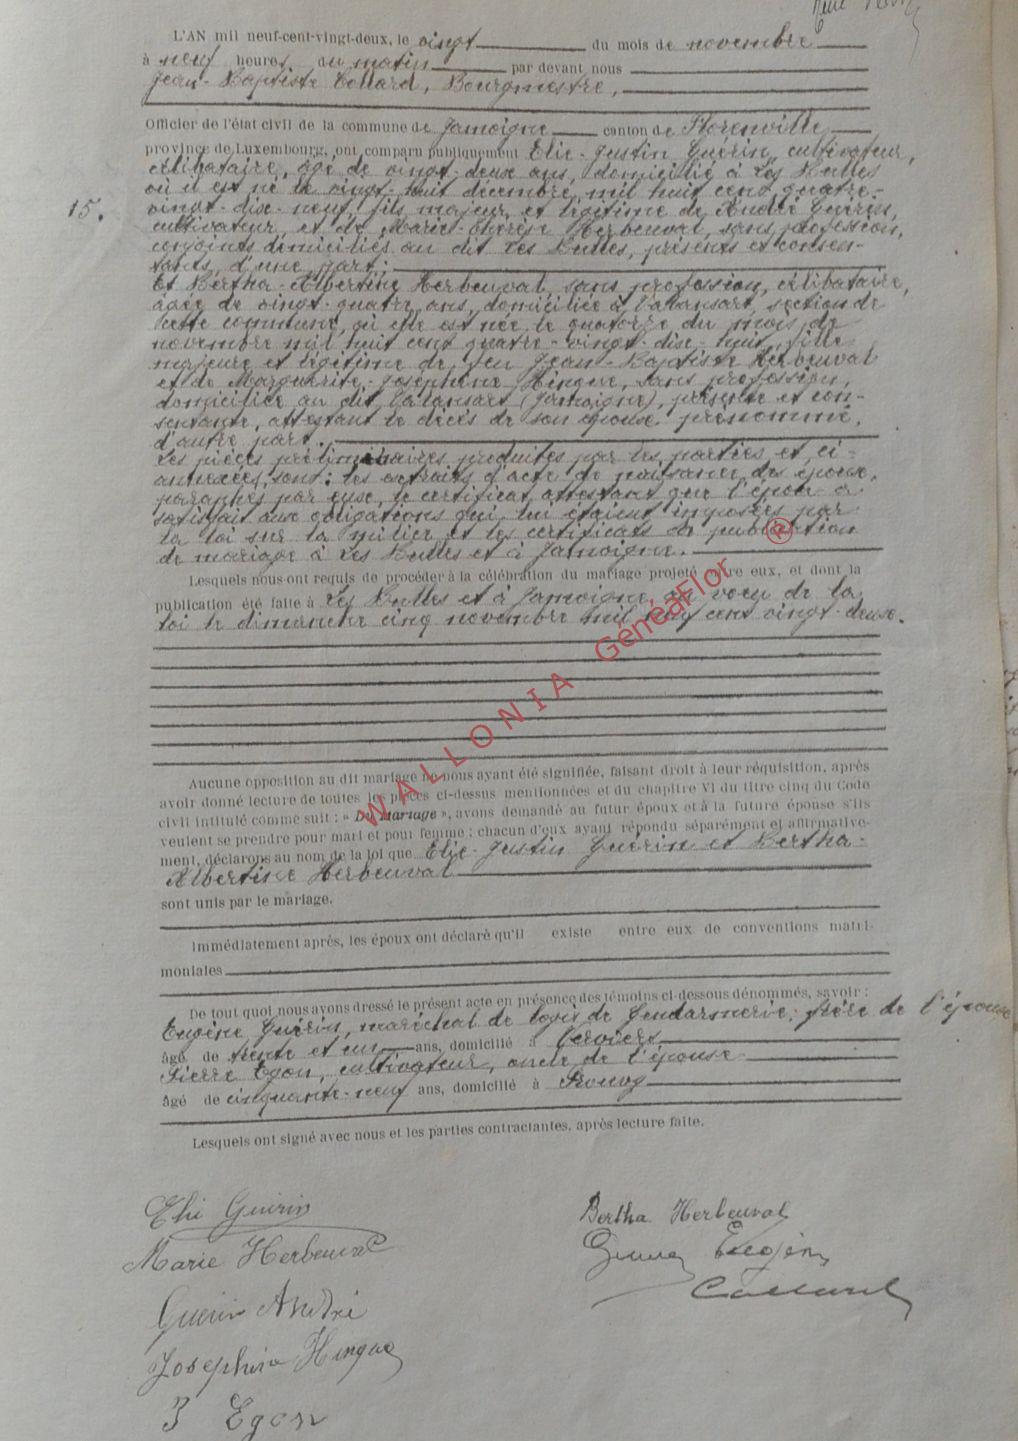 L'AN mil neuf-cent-vingt-deux, le vingt du mois de novembre
à neuf heures du matin par devant nous
Jean-Baptiste Collard, Bourgmestre,
Officier de l'état civil de la commune de Jamoigne canton de Florenville
province de Luxembourg, ont comparu publiquement Elie-Justin Guérin, cultivateur,
célibataire, âgé de vingt-deux ans, domicilié à Les Bulles
où il est né le vingt-huit décembre, mil huit cent quatre-
15. vingt-dix-neuf, fils majeur et légitime de André Guérin,
cultivateur, et de Marie-Thérèse Herbeuval, sans profession,
conjoints domiciliés au dit Les Bulles, présents et consen-
tants, d'une part;
Et Bertha-Albertine Herbeuval, sans profession, célibataire,
âgée de vingt-quatre ans, domiciliée à Valansart, section de
cette commune, où elle est née le quatorze du mois de
novembre mil huit cent quatre-vingt-dix-huit, fille
majeure et légitime de feu Jean-Baptiste Herbeuval
et de Marguerite-Joséphine Hingue, sans profession,
domiciliée au dit Valansart (Jamoigne), présente et con-
sentante, attestant le décès de son époux prénommé,
d'autre part.
Les pièces préliminaires produites par les parties et ci-
annexées, sont: les extraits d'acte de naissance des époux,
paraphés par eux, le certificat attestant que l'époux a
satisfait aux obligations qui lui étaient imposées par
la loi sur la milice et les certificats de publication
de mariage à Les Bulles et à Jamoigne.
Lesquels nous ont requis de procéder à la célébration du mariage projeté entre eux, et dont la
publication été faite à Les Bulles et à Jamoigne, au voeu de la
loi le dimanche cinq novembre mil neuf cent vingt-deux.
WALLONIA GénéaFlor ®
Aucune opposition au dit mariage ne nous ayant été signifiée, faisant droit à leur réquisition, après
avoir donné lecture de toutes les pièces ci-dessus mentionnées et du chapitre VI du titre cinq du Code
civil intitulé comme suit : « Du Mariage », avons demandé au futur époux et à la future épouse s'ils
veulent se prendre pour mari et pour femme ; chacun d'eux ayant répondu séparément et affirmative-
ment, déclarons au nom de la loi que Elie-Justin Guérin et Bertha-
Albertine Herbeuval
sont unis par le mariage.
Immédiatement après, les époux ont déclaré qu'il existe entre eux de conventions matri-
moniales
De tout quoi nous avons dressé le présent acte en présence des témoins ci-dessous dénommés, savoir :
Eugène Guérin, maréchal de logis de Gendarmerie, frère de l'époux
âgé de trente et un ans, domicilié à Verviers
Pierre Egon, cultivateur, oncle de l'épouse
âgé de cinquante-neuf ans, domicilié à Prouvy
Lesquels ont signé avec nous et les parties contractantes, après lecture faite.
Elie Guérin
Bertha Herbeuval
Marie Herbeuval
Eugène
Collard
Guerin André
Josephine Hingue
Egon